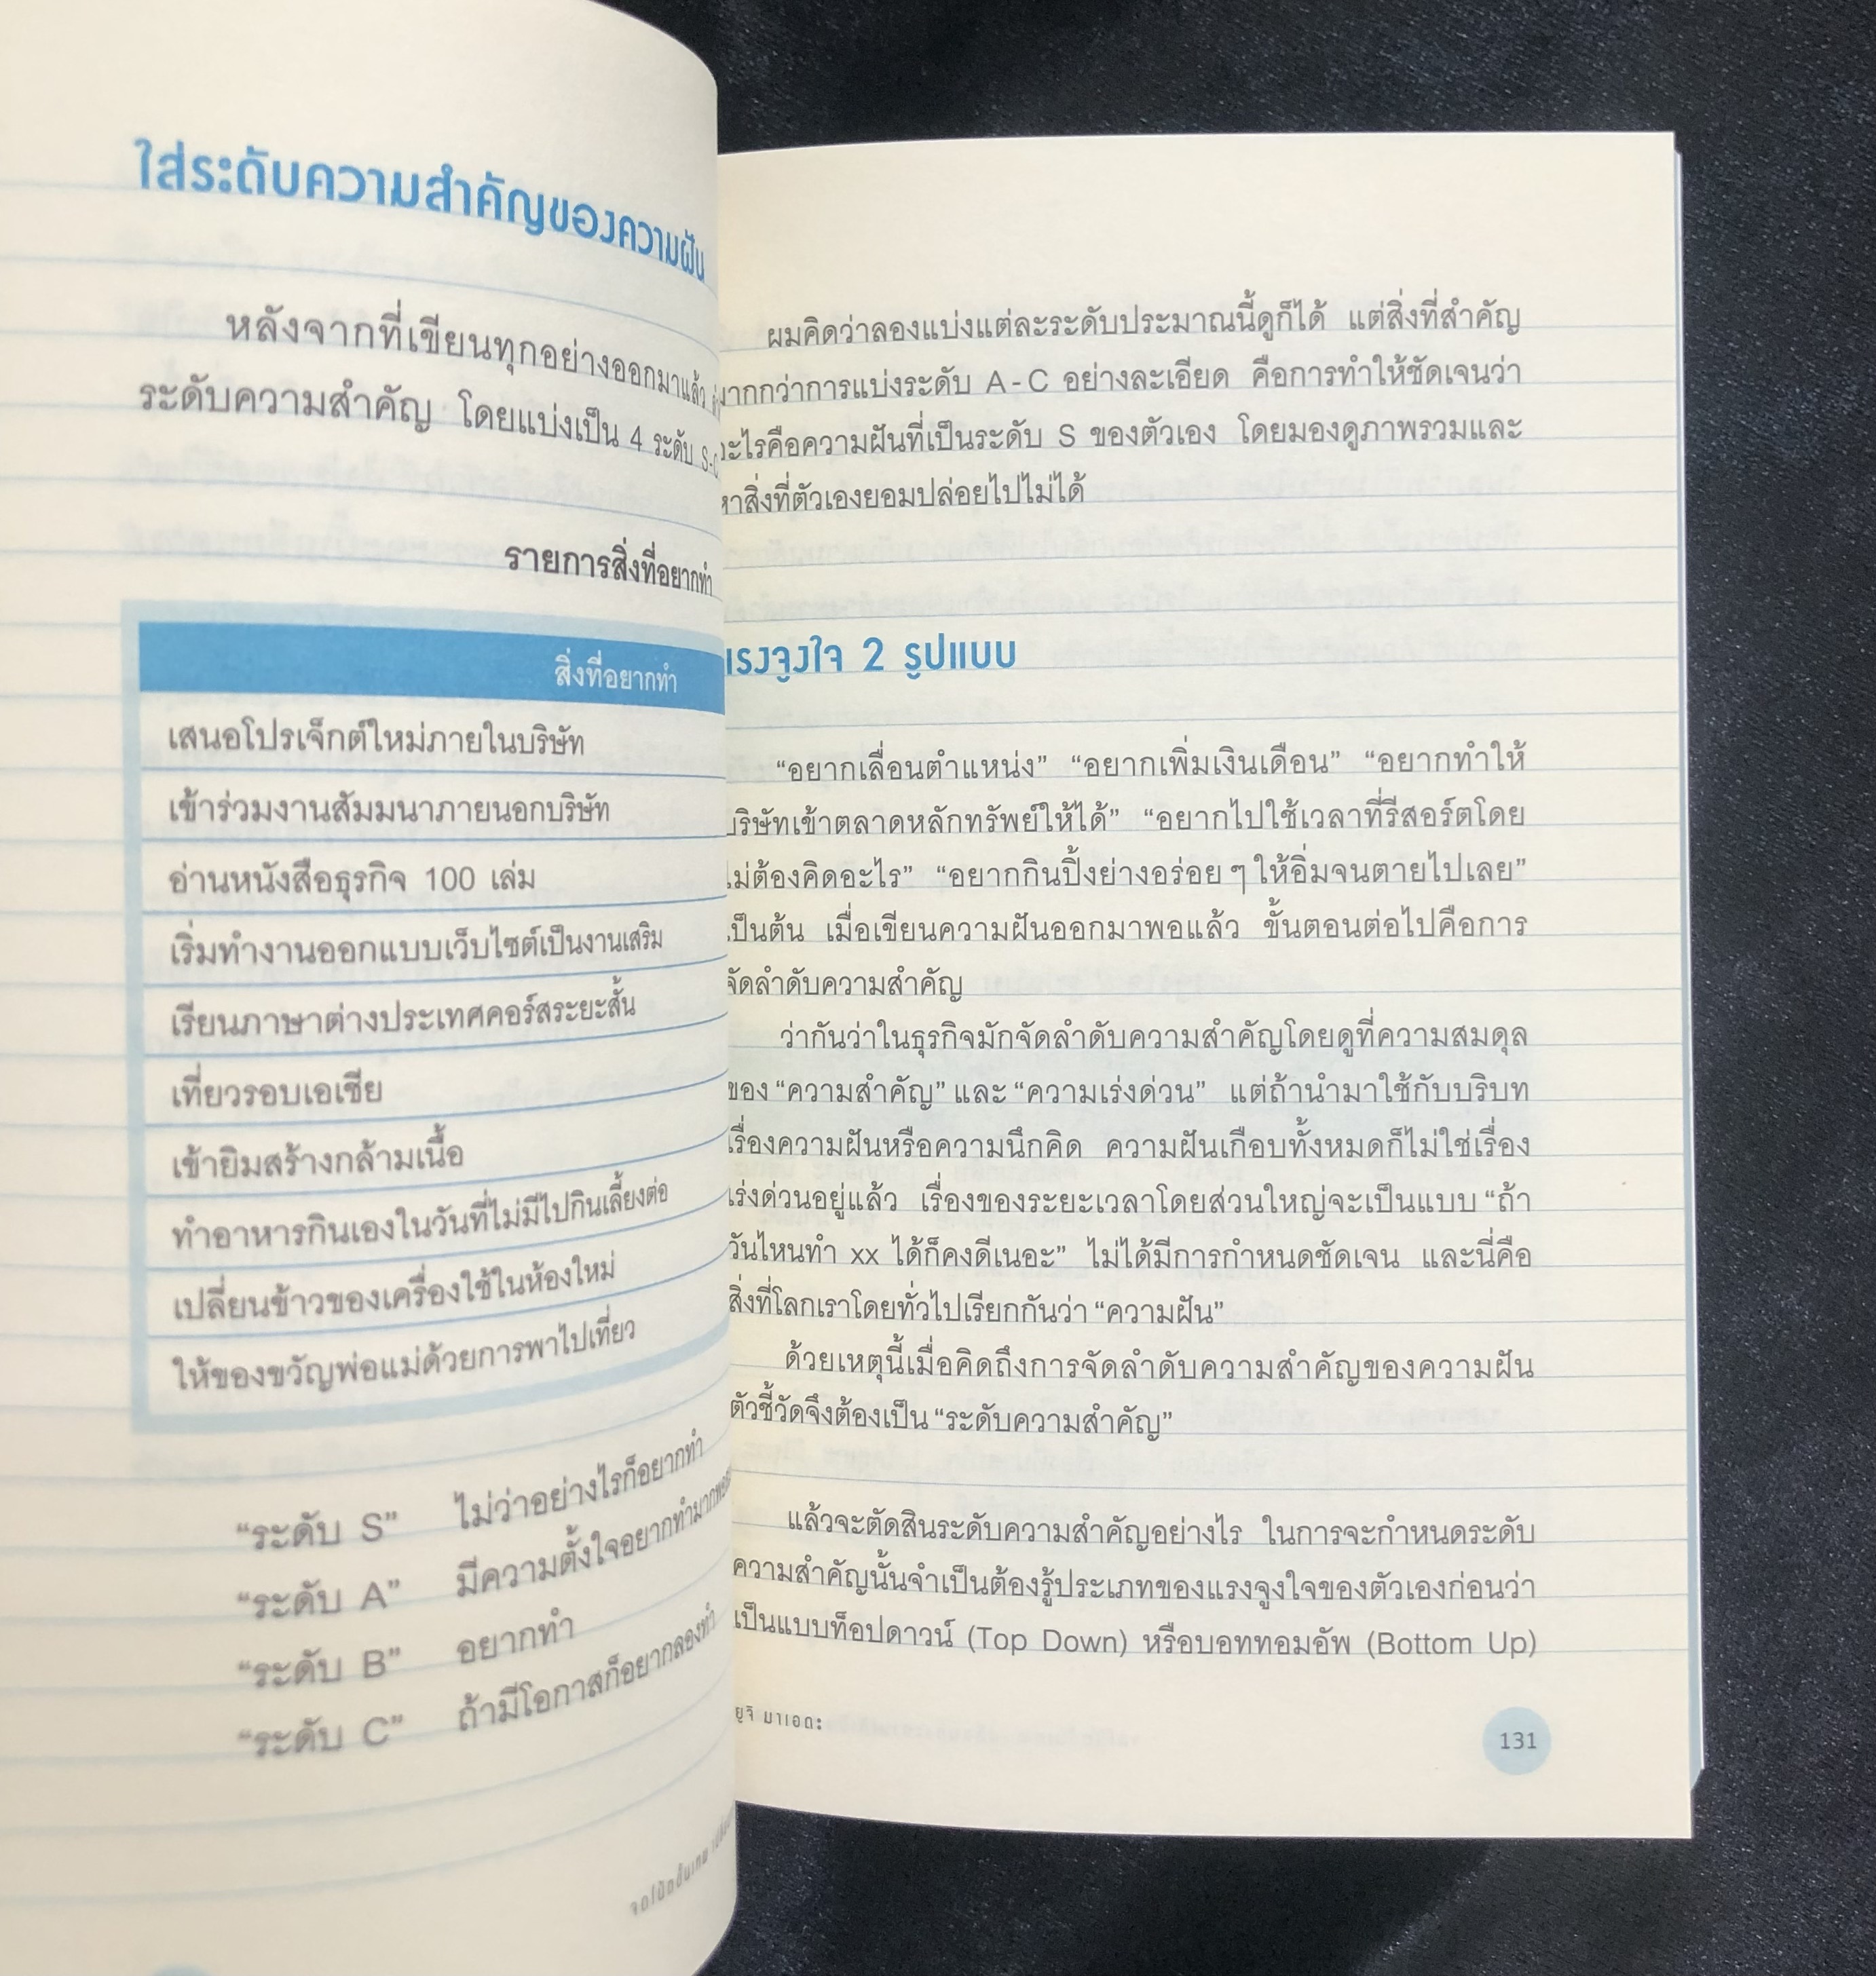 ใส่ระดับความสำคัญของความฝัน
หลังจากที่เขียนทุกอย่างออกมาแล้ว
ระดับความสำคัญ โดยแบ่งเป็น 4 ระดับ S-C
รายการสิ่งที่อยากทำ
สิ่งที่อยากทำ
เสนอโปรเจ็กต์ใหม่ภายในบริษัท
เข้าร่วมงานสัมมนาภายนอกบริษัท
อ่านหนังสือธุรกิจ 100 เล่ม
เริ่มทำงานออกแบบเว็บไซต์เป็นงานเสริม
เรียนภาษาต่างประเทศคอร์สระยะสั้น
เที่ยวรอบเอเชีย
เข้ายิมสร้างกล้ามเนื้อ
ทำอาหารกินเองในวันที่ไม่มีไปกินเลี้ยงต่อ
เปลี่ยนข้าวของเครื่องใช้ในห้องใหม่
ให้ของขวัญพ่อแม่ด้วยการพาไปเที่ยว
“ระดับ S” ไม่ว่าอย่างไรก็อยากทำ
“ระดับ A” มีความตั้งใจอยากทำมาก
“ระดับ B” อยากทำ
“ระดับ C” ถ้ามีโอกาสก็อยากลองทำ
ผมคิดว่าลองแบ่งแต่ละระดับประมาณนี้ดูก็ได้ แต่สิ่งที่สำคัญ
มากกว่าการแบ่งระดับ A-C อย่างละเอียด คือการทำให้ชัดเจนว่า
อะไรคือความฝันที่เป็นระดับ S ของตัวเอง โดยมองดูภาพรวมและ
หาสิ่งที่ตัวเองยอมปล่อยไปไม่ได้
แรงจูงใจ 2 รูปแบบ
“อยากเลื่อนตำแหน่ง” “อยากเพิ่มเงินเดือน” “อยากทำให้
บริษัทเข้าตลาดหลักทรัพย์ให้ได้” “อยากไปใช้เวลาที่รีสอร์ตโดย
ไม่ต้องคิดอะไร” “อยากกินปิ้งย่างอร่อย ๆ ให้อิ่มจนตายไปเลย”
เป็นต้น เมื่อเขียนความฝันออกมาพอแล้ว ขั้นตอนต่อไปคือการ
จัดลำดับความสำคัญ
ว่ากันว่าในธุรกิจมักจัดลำดับความสำคัญโดยดูที่ความสมดุล
ของ “ความสำคัญ” และ “ความเร่งด่วน” แต่ถ้านำมาใช้กับบริบท
เรื่องความฝันหรือความนึกคิด ความฝันเกือบทั้งหมดก็ไม่ใช่เรื่อง
เร่งด่วนอยู่แล้ว เรื่องของระยะเวลาโดยส่วนใหญ่จะเป็นแบบ “ถ้า
วันไหนทำ xx ได้ก็คงดีเนอะ” ไม่ได้มีการกำหนดชัดเจน และนี่คือ
สิ่งที่โลกเราโดยทั่วไปเรียกกันว่า “ความฝัน”
ด้วยเหตุนี้เมื่อคิดถึงการจัดลำดับความสำคัญของความฝัน
ตัวชี้วัดจึงต้องเป็น “ระดับความสำคัญ”
แล้วจะตัดสินระดับความสำคัญอย่างไร ในการจะกำหนดระดับ
ความสำคัญนั้นจำเป็นต้องรู้ประเภทของแรงจูงใจของตัวเองก่อนว่า
เป็นแบบท็อปดาวน์ (Top Down) หรือบอททอมอัพ (Bottom Up)
ยูจิ มาเอดะ
131